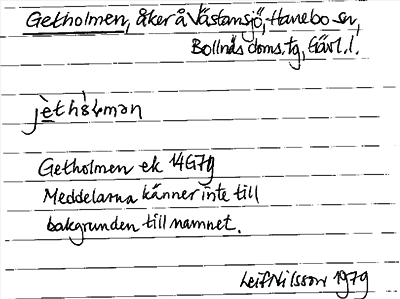 Getholmen, åker å Västansjö, Hanebo sn,
Bollnäs doms. tg, Gävl. l.
jèthòlmən
Getholmen ek 14G7g
Meddelarna känner inte till
bakgrunden till namnet.
Leif Nilsson 1979